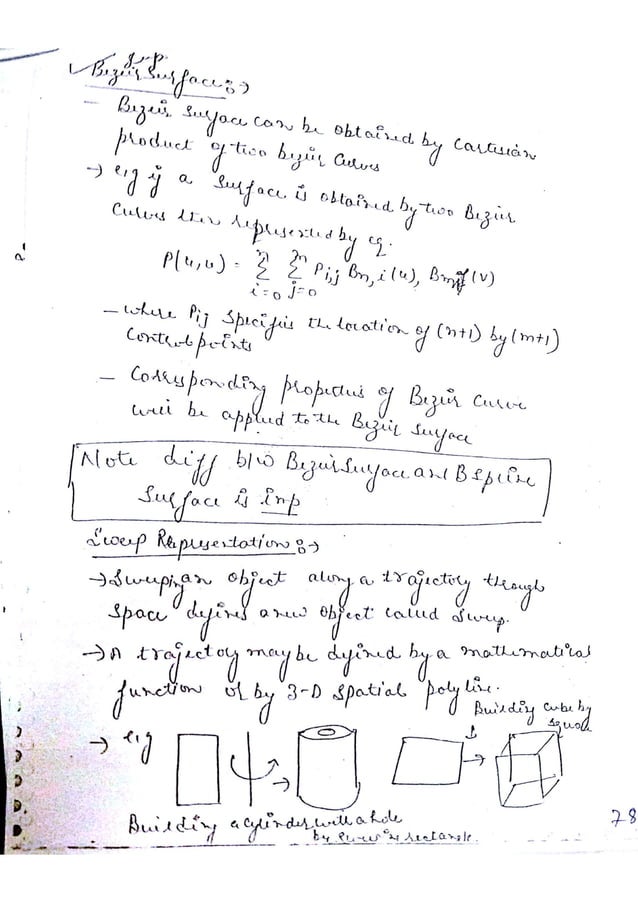 Imp
Bezier Surface :→
- Bezier Surface can be obtained by Cartisian
product of two bezier Curves
→ eig if a Surface is obtained by two Bezier
Curves then represented by eq.
P(u,u) = Σ Σ Pi,j Bn,i(u), Bm,j(v)
n m
i=0 j=0
- where Pij Specifies the location of (n+1) by (m+1)
Control points
- Corresponding properties of Bezier Curve
will be applied to the Bezier Surface
Note diff b/w Bezier Surface and B Spline
Surface is imp
Sweep Representation :→
→ Sweeping an object along a trajectory through
Space defines a new object called Sweep.
→ A trajectory may be defined by a mathematical
function or by 3-D Spatial polyline.
Building cube by
square
→ eig
Building a cylinder with a hole
by rectangle.
78